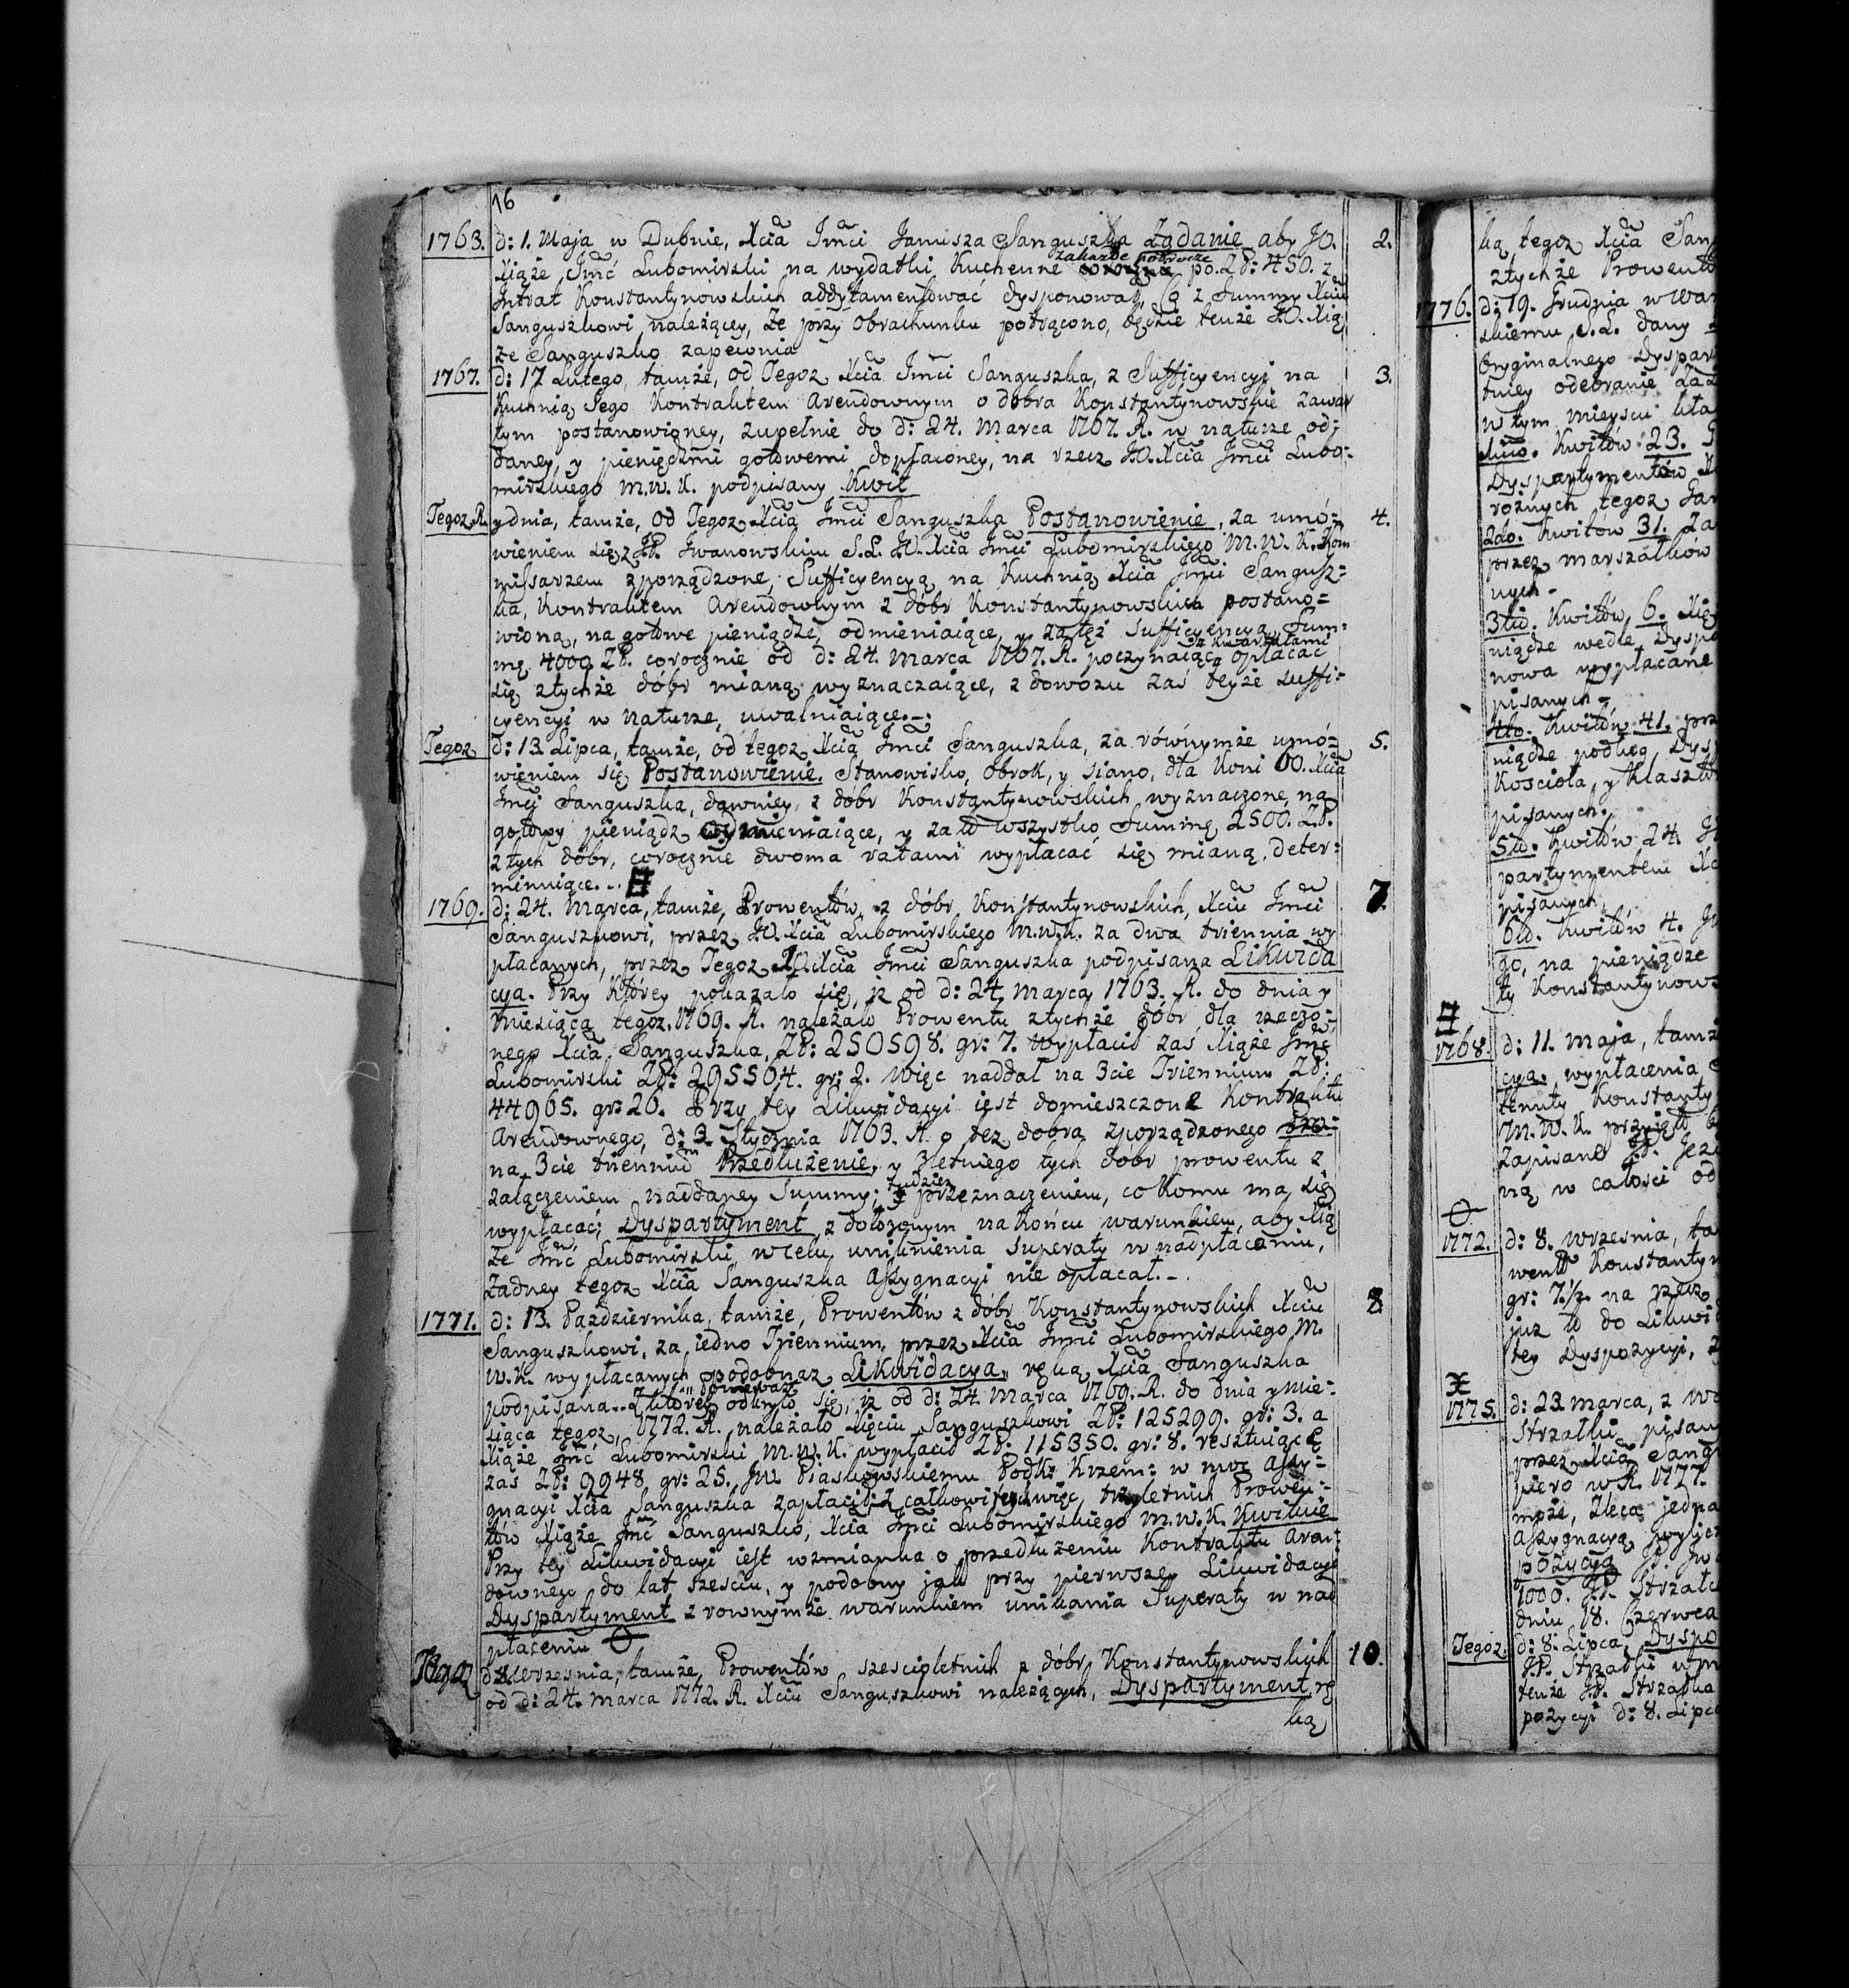 16
1763. d: 1. Maja w Dubnie, Xcia Jmći Janusza Sanguszka Żądanie aby JO. 2.
zakażde pobrocze
Xiąże Jmć Lubomirski na wydatki Kuchenne po Zł: 450. z
Intrat Konstantynowskich addytamentować dysponował, Ca z Summy Xciu
Sanguszkowi należącey, że przy obrachunku potrącono, będzie tenże JO. Xią
że Sanguszko zapewnia
1767. d: 17 Lutego, tamże, od Tegoż Xcia Jmći Sanguszka, z Sufficyencyi na 3.
Kuchnią Jego Kontraktem Arendownym o dobra Konstantynowskie zawar
tym postanowioney, zupełnie do d: 24. Marca 1767. R. w naturze od:
daney, y pieniędzmi gotowemi dopłaconey, na rzecz JO. Xcia Jmći Lubo:
mirskiego M.W.K. podpisany Kwit
Tegoż R. y dnia, tamże, od Tegoż Xcia Jmći Sanguszka Postanowienie, za umó: 4.
wieniem się z JP. Iwanowskim S.L. JO. Xcia Jmći Lubomirskiego M.W.K. Kom
missarzem zporządzone, Sufficyencyą na Kuchnią Xcia Jmći Sangusz:
ka, Kontraktem Arendownym z dóbr Konstantynowskich postano=
wioną, na gotowe pieniądze, odmieniaiące, y zatęż Sufficyencyą Sum:
kwartałami
mę 4000. Zł. corocznie od d: 24. Marca 1767. R. poczynaiąc opłacać
się ztychże dóbr mianą, wyznaczaiące, z dowozu zaś teyże Suffi:
cyencyi w naturze, uwalniaiące.-:
Tegoż d: 13. Lipca, tamże, od tegoż Xcia Jmći Sanguszka, za równymże umó= 5.
wieniem się Postanowienie, Stanowisko, obrok, y siano, dla Koni JO. Xcia
Jmći Sanguszka, dawniey z dóbr Konstantynowskich wyznaczone, na
gotowy pieniądz odmieniaiące, y za to wszystko Summę 2500. Zł.
z tych dóbr, corocznie dwoma ratami wypłacać się mianą, deter:
minuiące...
1769. d: 24. Marca, tamże, Prowentów z dóbr Konstantynowskich, Xciu Jmći 7.
Sanguszkowi, przez JO. Xcia Lubomirskiego M.W.K. za dwa triennia wy
płacanych, przez Tegoż JO Xcia Jmći Sanguszka podpisana Likwida
cya. Przy którey pokazało się, iż od d: 24. Marca 1763. R. do dnia y
miesiąca tegoż 1769. R. należało Prowentu ztychże dóbr dla rzeczo:
nego Xcia Sanguszka, Zł: 250598. gr: 7. Wypłacił zaś Xiąże Jmć
Lubomirski Zł: 295504. gr: 2. więc naddał na 3cie Triennium Zł:
44965. gr: 26. Przy tey Likwidacyi iest domieszczone Kontraktu
Arendownego, d: 3. Stycznia 1763. R. o też dobra zporządzonego
na 3cie triennium Przedłużenie, y 3letniego tych dóbr prowentu z
tudzież
załączeniem naddaney Summy; przeznaczeniem, co komu ma się
wypłacać; Dyspartyment, z dołożonym na końcu warunkiem, aby Xią
że Jmć Lubomirski, wcelu uniknienia Superaty w nadpłacaniu,
żadney tegoż Xcia Sanguszka Assygnacyi nie opłacał.-.
1771. d: 13. Października, tamże, Prowentów z dóbr Konstantynowskich Xciu 8.
Sanguszkowi, za iedno Triennium, przez Xcia Jmći Lubomirskiego M.
W.K. wypłacanych podobnaż Likwidacya, ręką Xcia Sanguszka
ponieważ
podpisana.. Z którey odkryło się, iż od d: 24. Marca 1769. R. do dnia y mie:
siąca tegoż, 1772. R. należało Xięciu Sanguszkowi Zł: 125299. gr: 3. a
Xiąże Jmć Lubomirski M.W.K. wypłacił Zł: 115350. gr: 8. resztuiące
zaś Zł: 9948. gr: 25. JW. Piaskowskiemu Podk: Krzem: w moc Assy:
gnacyi Xcia Sanguszka zapłacił: Z całkowitych więc trzyletnich Prowen:
tów Xiąże Jmć Sanguszko, Xcia Jmći Lubomirskiego M.W.K. Kwituie
Przy tey Likwidacyi iest wzmianka o przedłużeniu Kontraktu Aren:
downego do lat sześciu, y podobny jak przy pierwszey Likwidacyi
Dyspartyment z rownymże warunkiem unikania Superaty w nad
płaceniu
Tegoż d: 8. września, tamże, Prowentów sześcioletnich z dóbr Konstantynowskich 10.
od d: 24. Marca 1772. R. Xciu Sanguszkowi należących, Dyspartyment rę
ką
ką tegoż Xcia San
ztychże Prowentó
1776. d: 19. Grudnia w War
skiemu S.L. dany
Oryginalnego Dyspar
tniey odebranie
w tym mieyscu
Kwitów 23.
Dyspartymentów
różnych tegoż
2do. Kwitów 31. Za
przez Marszałków
nych.
3tio. Kwitów 6.
niądze wedle Dyspo
nowa wypłacane
pisanych
4to. Kwitów 41. prz
niądze podług Dys
Kościoła, y Klaszto
pisanych.
5to. Kwitów 24.
partymentem
pisanych
6to. Kwitów 4.
go, na pieniądze
ty Konstantynows
1768. d: 11. Maja, tamż
cya, wypłacenia
tenuty Konstanty
M.W.K. przyiął
Zapisane
ną w całości od
1772. d: 8. września, ta
wentu Konstantyn
gr: 7.½. na rzecz
już to do Likwi
tey Dyspozycyi,
1775. d: 23. Marca, z
Strzałki pisan
przez Xcia Sang
piero w R. 1777.
może, Zleca jedna
Assygnacyą
pozycyą JP.
1000. JP. Strzałc
dniu 18. Czerwca
Tegoż. d: 8. Lipca, Dyspo
JP. Strzałki
tenże JP. Strzałka
pozycyi d: 8. Lipca